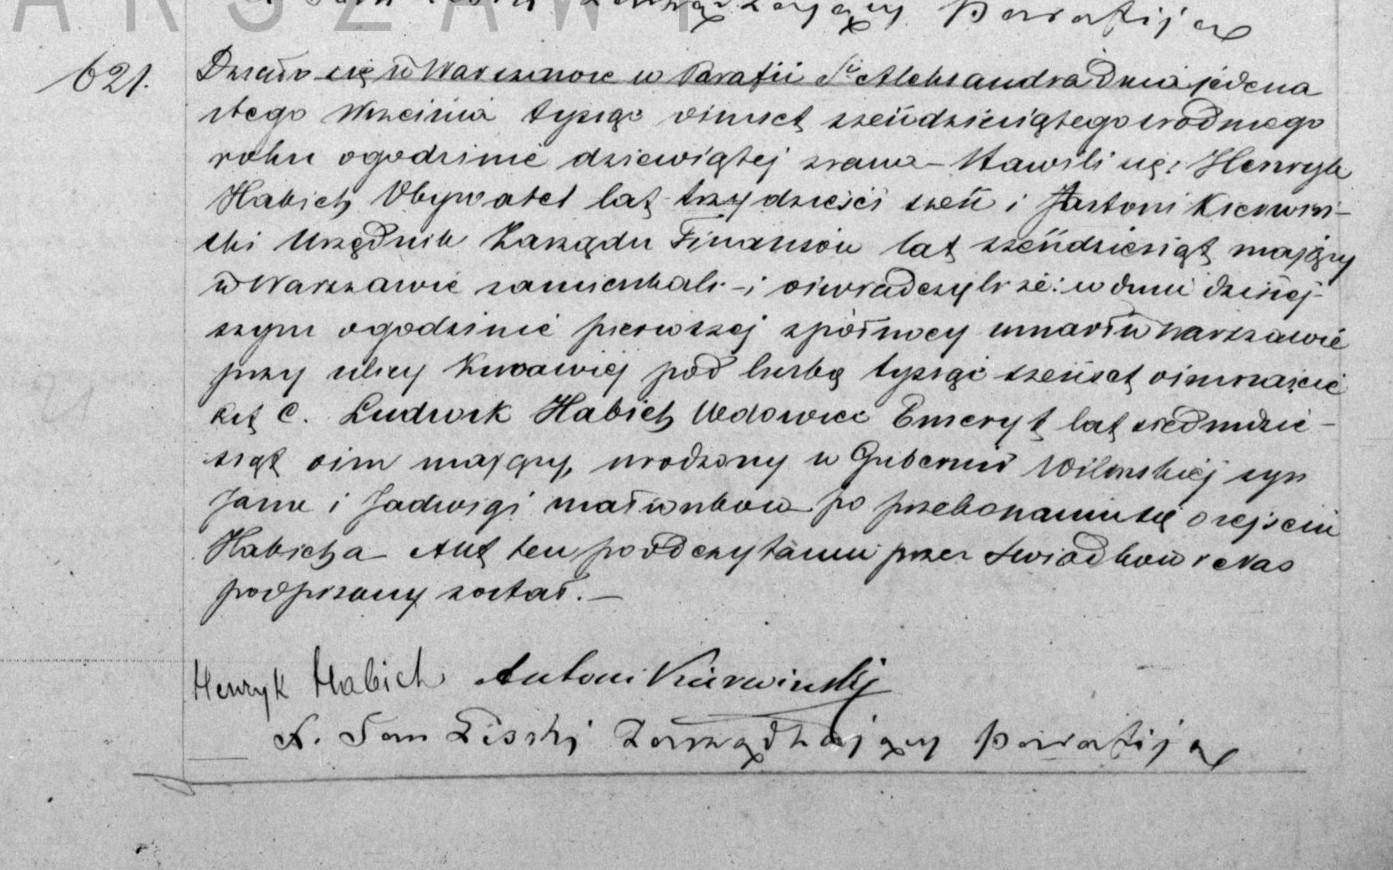 ARSZAWY
Zarządzający Parafiją
621.
Działo się w Warszawie w Parafii Sgo Alexandra Dnia jedena
stego Września tysiąc ośmset sześćdziesiątego siódmego
roku o godzinie dziewiątej z rana – Stawili się: Henryk
Habich Obywatel lat trzydzieści sześć i Antoni Kierwiń-
ski Urzędnik Zarządu Finansów lat sześćdziesiąt mający
w Warszawie zamieszkali – i oświadczyli że: w dniu dzisiej-
szym o godzinie pierwszej z północy umarł w Warszawie
przy ulicy Żurawiej pod liczbą tysiąc sześćset ośmnaście
lit. C. Ludwik Habich Wdowiec Emeryt lat siedmdzie-
siąt ośm mający, urodzony w Gubernii Wileńskiej syn
Jana i Jadwigi małżonków po przekonaniu się o zejściu
Habicha – Akt ten po odczytaniu przez Świadków i Nas
podpisany został. –
Henryk Habich Antoni Kierwiński
X. Jan Zarządzający Parafiją